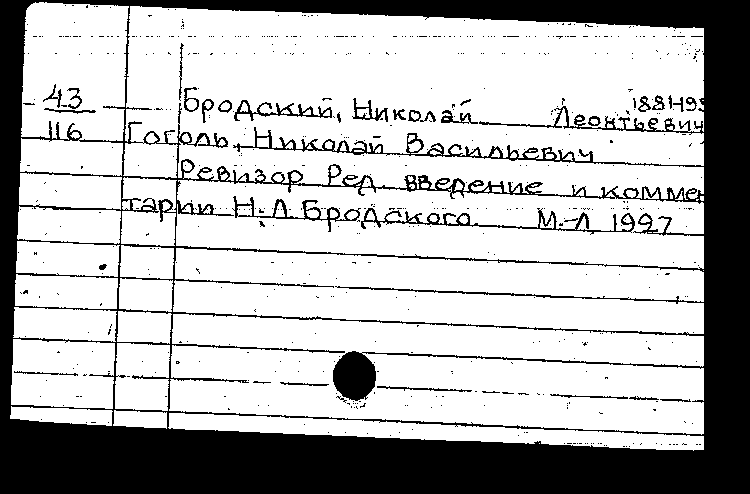 43 Бродский, Николай Леонтьевич
116 Гоголь, Николай Васильевич
Ревизор Ред. введение и коммен
тарии Н.Л.Бродского. М.-Л. 1927